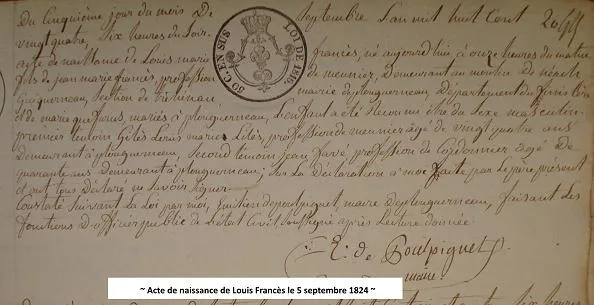 Du Cinquième jour du mois De septembre L'an mil huit Cent
vingt quatre, six heures du soir.
acte de naissance de Louis marie francès, né aujourd'hui à onze heures du matin
fils de jean marie francès, profession de meunier, Demeurant au moulin de
section de mairie de plouguerneau, Département du finistère
et de marie mariés à plouguerneau, L'enfant a été reconnu être du Sexe masculin
premier témoin Louis marie profession de meunier âgé de vingt quatre ans
Demeurant à plouguerneau, second témoin jean profession de Cordonnier âgé de
quarante ans Demeurant à plouguerneau; sur la Déclaration à moi faite par le père présent
et ont tous déclaré ne savoir signer
Constaté suivant la Loi par moi, maire de plouguerneau, faisant les
fonctions d'officier public de l'état civil soussigné après Lecture donnée
E. de Poulpiquet
maire
50 C. EN SUS
LOI DE 1816.
~ Acte de naissance de Louis Francès le 5 septembre 1824 ~